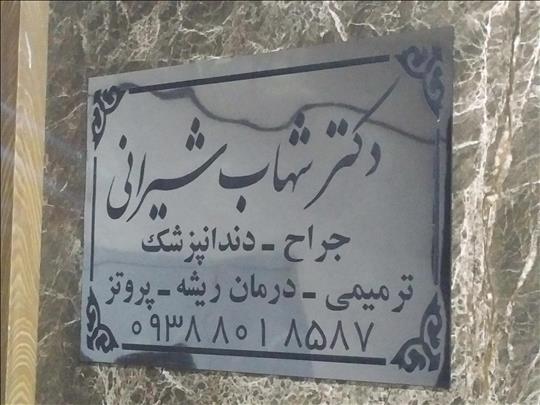 دکتر شهاب شیرانی
جراح - دندانپزشک
ترمیمی - درمان ریشه - پروتز
۰۹۳۸۸۰۱۸۵۸۷